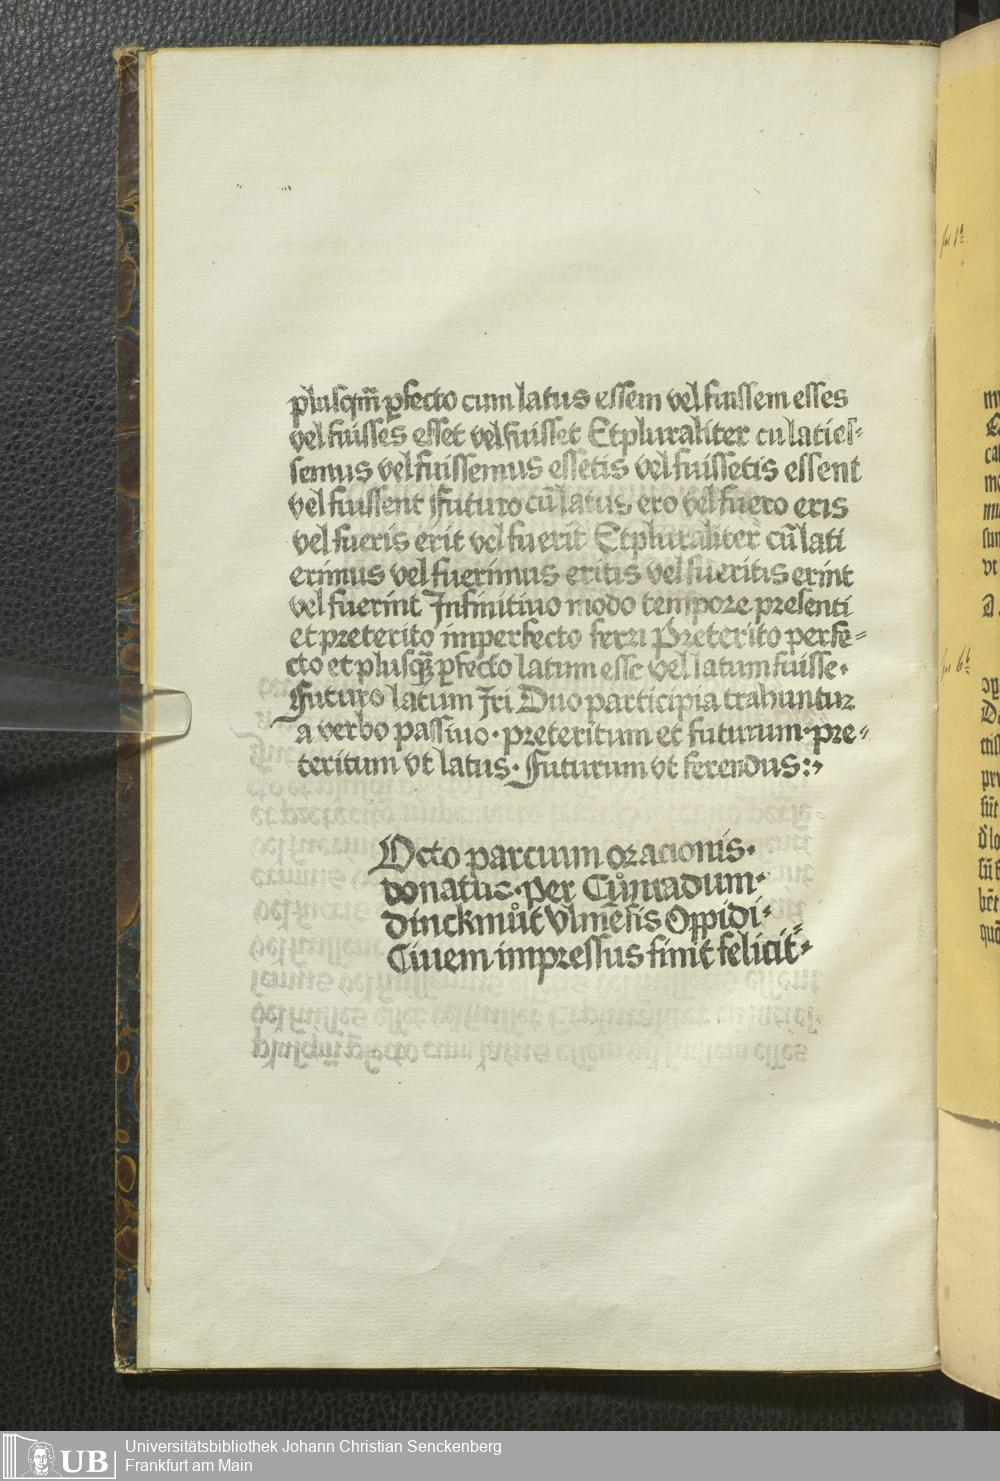 plusqm̄ ꝑfecto cum latus essem vel fuissem esses
vel fuisses esset vel fuisset Et pluraliter cu laties⸗
semus vel fuissemus essetis vel fuissetis essent
vel fuissent Futuro cū latus ero vel fuero eris
vel fueris erit vel fuerit Et pluraliter cū lati
erimus vel fuerimus eritis vel fueritis erint
vel fuerint Infinitiuo modo tempore presenti
et preterito imperfecto ferri Preterito perfe⸗
cto et plusqꝫ ꝑfecto latum esse vel latum fuisse·
Futuro latum Iri Duo participia trahuntur
a verbo passiuo· preteritum et futurum· pre⸗
teritum vt latus· Futurum vt ferendus:
Octo parcium oracionis·
donatus· per Cůnradum·
dinckmůt Vlmēsis Oppidi⸗
Ciuem impressus finit felicit⸗
Universitätsbibliothek Johann Christian Senckenberg
Frankfurt am Main
UB